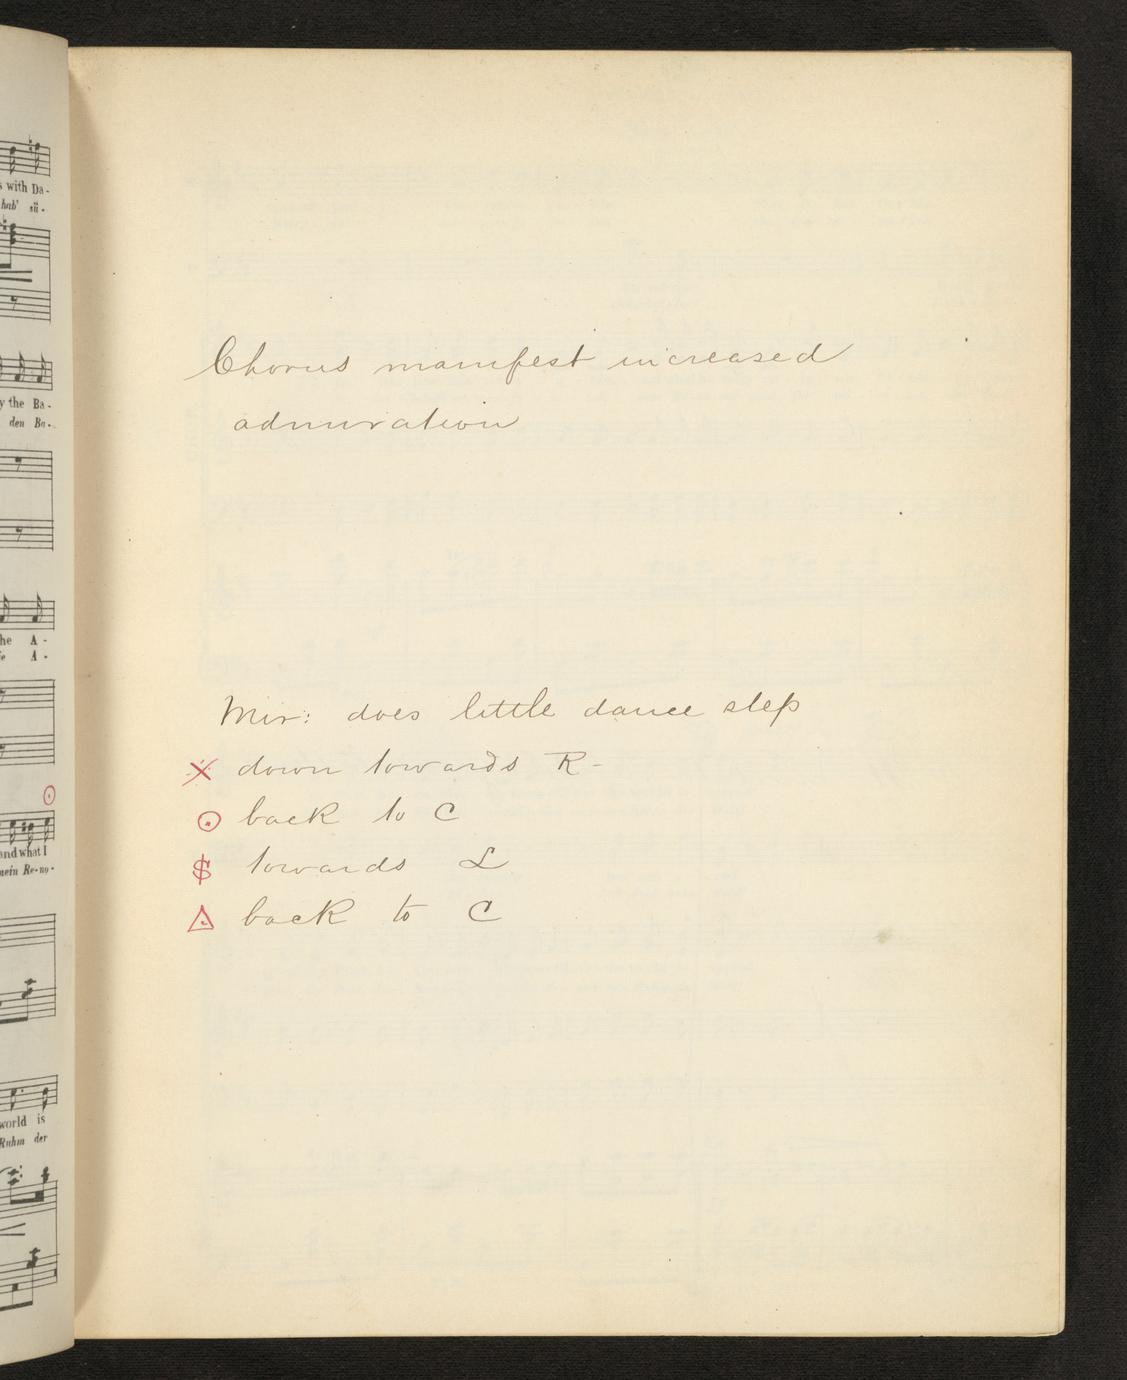 s with Da-
hab' sü-
y the Ba-
den Ba-
he A-
e A-
and what I
mein Re-no-
world is
Ruhm der
Chorus manifest increased
admiration
Mir: does little dance step
down towards R-
back to C
towards L
back to C